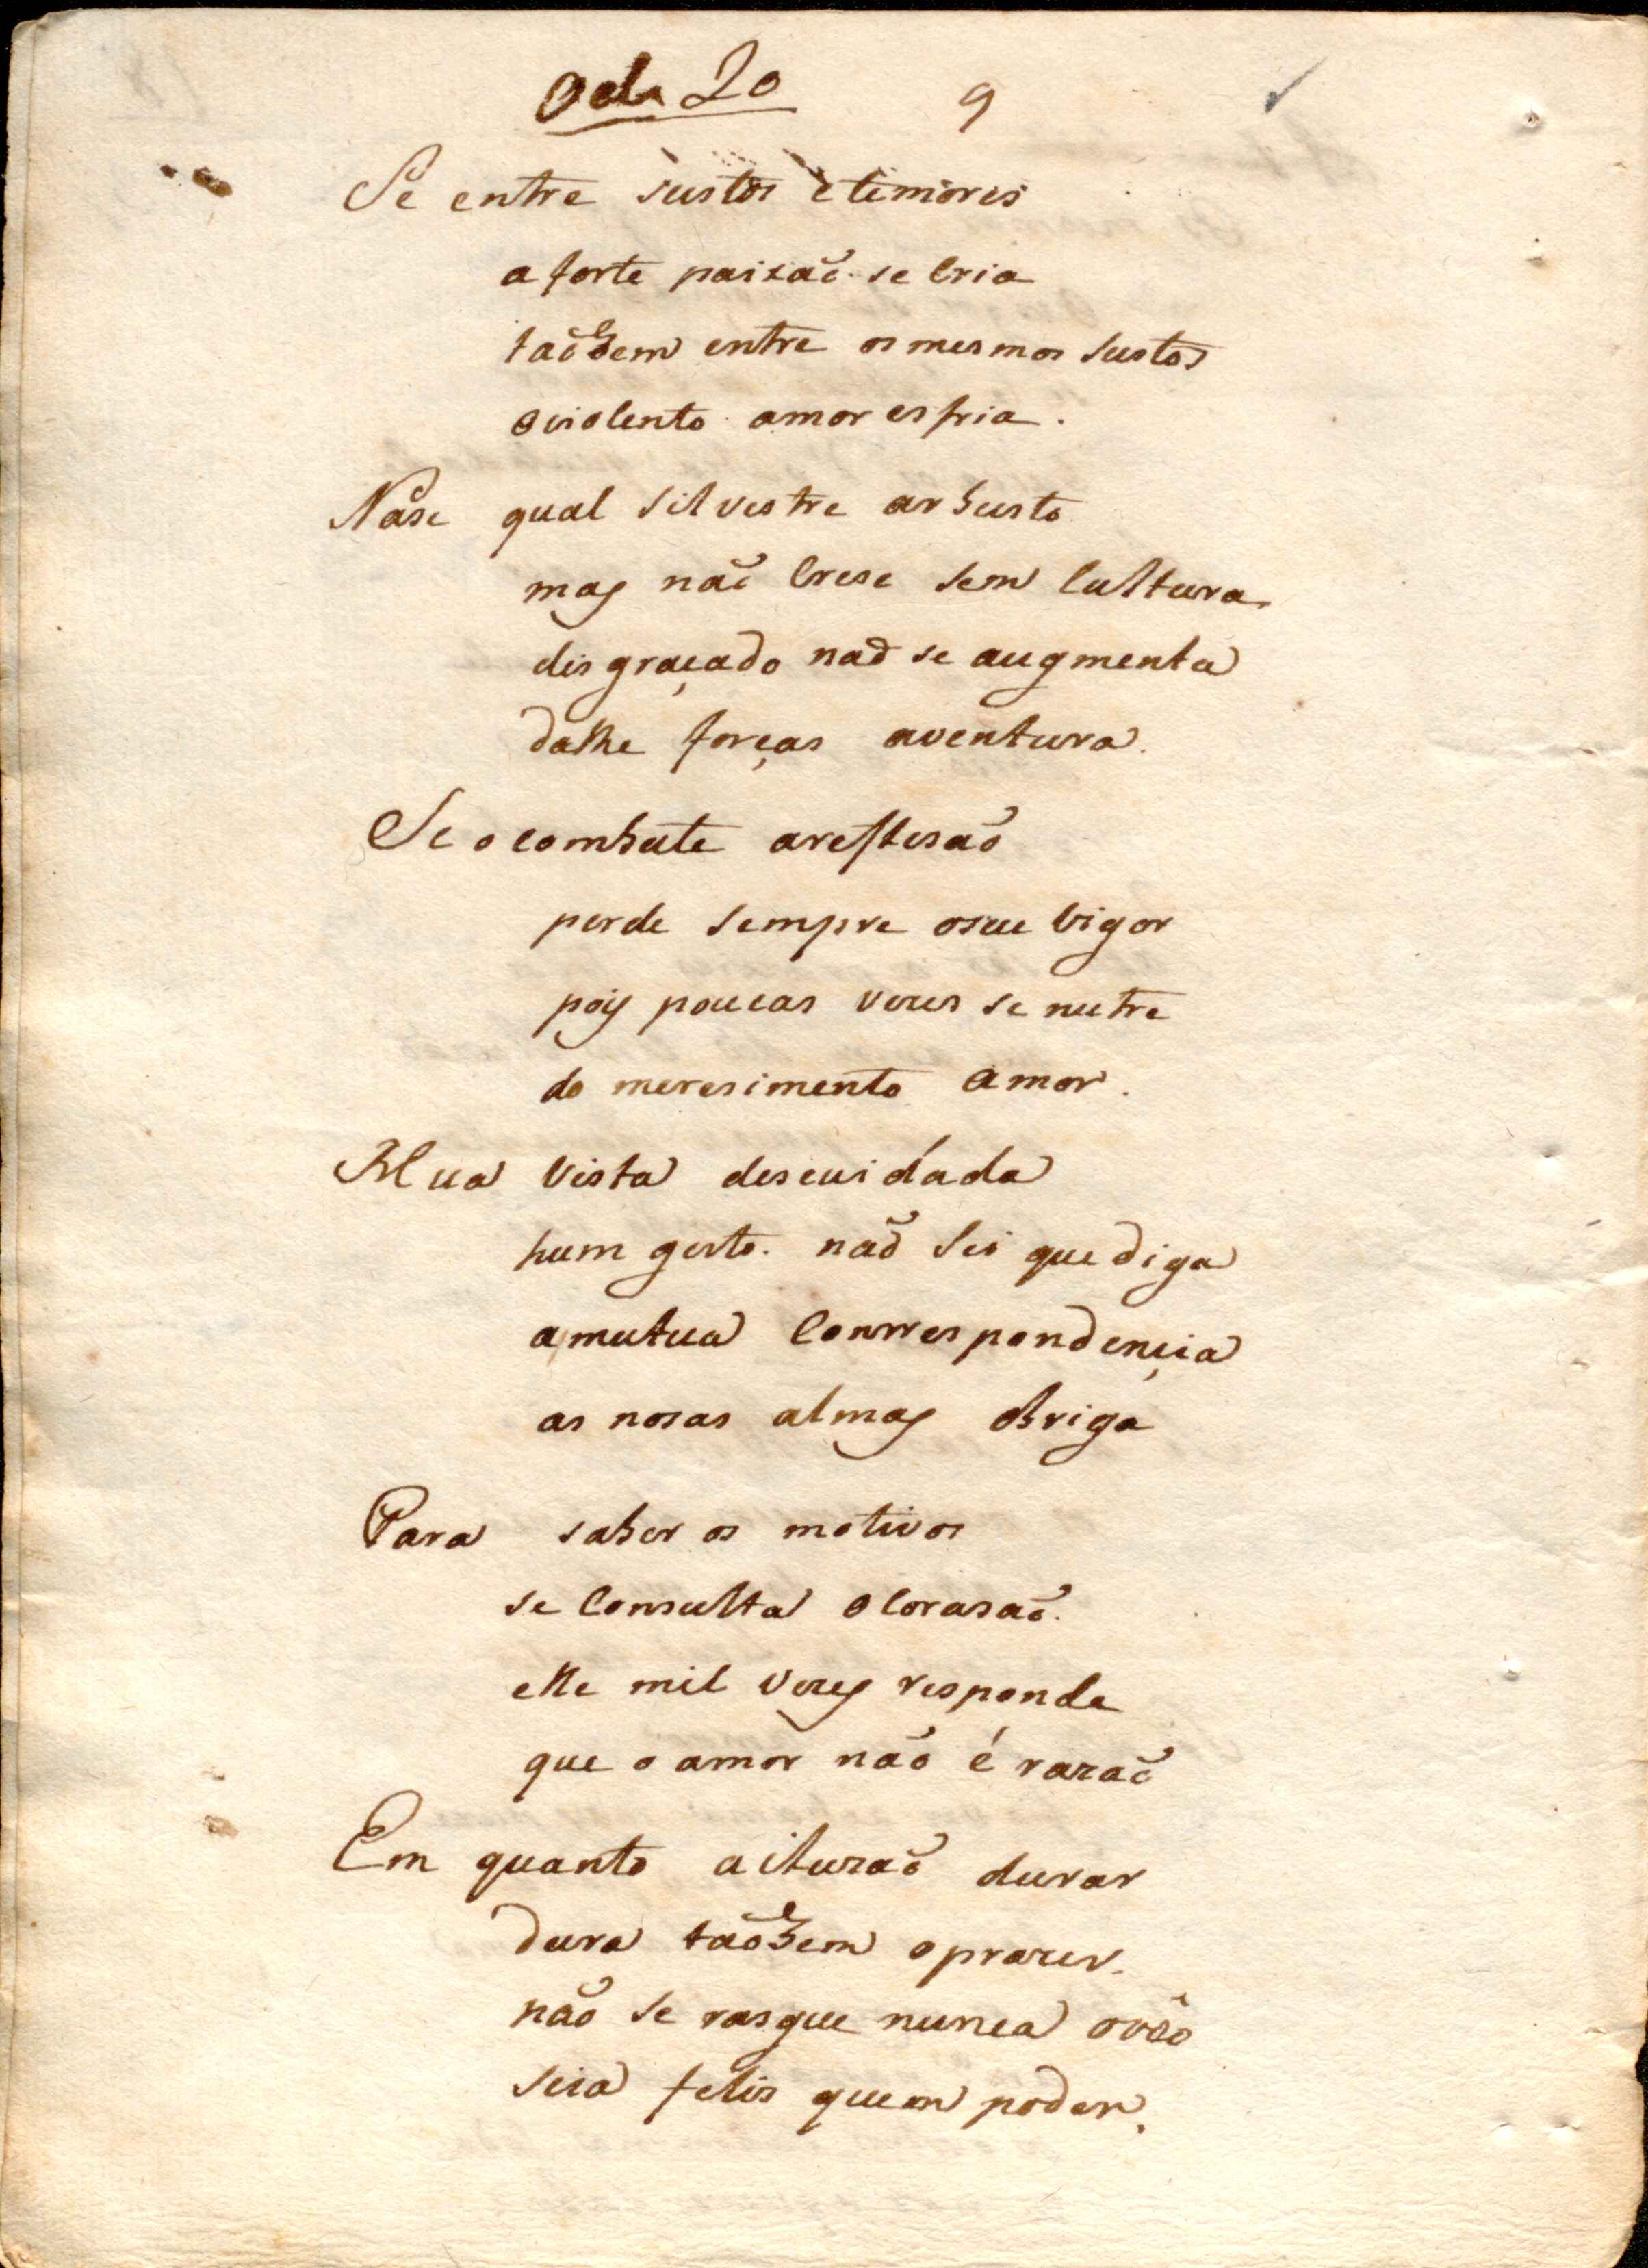 Oda 20 9
Se entre sustos e temores
a forte paixaõ se Cria
taõbem entre os mesmos sustos
o violento amor esfria.
Nàse qual silvestre arbusto
mas naõ Crese sem Cultura
disgraçado naõ se augmenta
dalhe forças aventura.
Se o combate areflesaõ
perde sempre oseu Vigor
pois poucas vezes se nutre
do meresimento amor.
Hua Vista descuidada
hum gesto. naõ sei que diga
amutua Conrrespondençia
as nosas almas obriga
Para saber os motivos
se Consulta o Corasaõ.
elle mil vezes responde
que o amor naõ é razaõ
Em quanto a iluzaõ durar
dura taõbem oprazer.
naõ se rasgue nunca ovéo
seia felis quem poder.